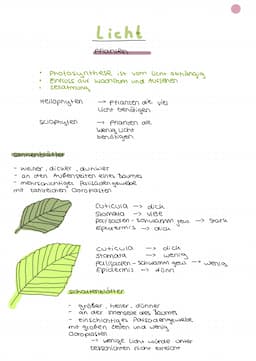 Licht
Pflanzen
• Photosynthese ist vom Licht abhängig
• Einfluss auf Wachstum und Aussehen
• Zellatmung
Heliophyten → Pflanzen die viel
Licht benötigen
Sciophyten → Pflanzen die
wenig Licht
benötigen
Sonnenblätter
- kleiner, dicker, dunkler
- an den Außenseiten eines Baumes
- mehrschichtiges Palisadengewebe
mit zahlreichen Chloroplasten
Cuticula → dick
Stomata → viele
Palisaden-Schwammgew. → stark
Epidermis → dick
Cuticula → dick
Stomata → wenig
Palisaden-Schwammgew. → wenig
Epidermis → dünn
Schattenblätter
- größer, heller, dünner
- an der Innenseite des Baumes
- einschichtiges Palisadengewebe
mit großen Zellen und wenig
Chloroplasten
→ wenige Licht würde unter
Zellschichten nicht erreichen